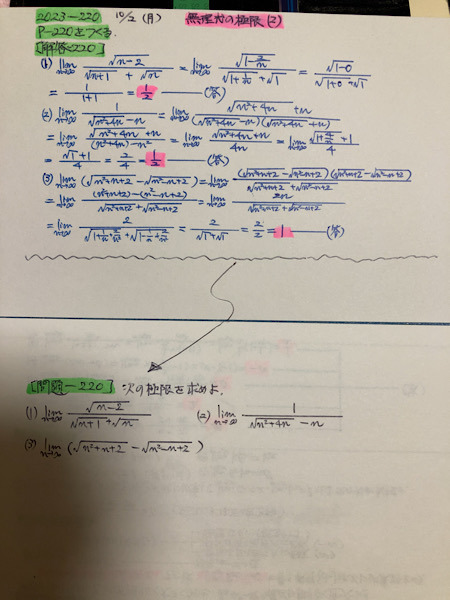 2023-220 10/2 (月) 無理式の極限(2)
P-220をつくる.
[解答-220]
(1) lim n→∞ √(n-2) / (√(n+1) + √n) = lim n→∞ √(1-2/n) / (√(1+1/n) + √1) = √(1-0) / (√(1+0) + √1)
= 1/(1+1) = 1/2 ——(答)
(2) lim n→∞ 1/(√(n²+4n) - n) = lim n→∞ (√(n²+4n) + n) / ((√(n²+4n) - n)(√(n²+4n) + n))
= lim n→∞ (√(n²+4n) + n) / ((n²+4n) - n²) = lim n→∞ (√(n²+4n) + n) / 4n = lim n→∞ (√(1+4/n) + 1) / 4
= (√1+1)/4 = 2/4 = 1/2 ——(答)
(3) lim n→∞ (√(n²+n+2) - √(n²-n+2)) = lim n→∞ (√(n²+n+2) - √(n²-n+2))(√(n²+n+2) + √(n²-n+2)) / (√(n²+n+2) + √(n²-n+2))
= lim n→∞ ((n²+n+2) - (n²-n+2)) / (√(n²+n+2) + √(n²-n+2)) = lim n→∞ 2n / (√(n²+n+2) + √(n²-n+2))
= lim n→∞ 2 / (√(1+1/n+2/n²) + √(1-1/n+2/n²)) = 2/(√1+√1) = 2/2 = 1 ——(答)
[問題-220] 次の極限を求めよ.
(1) lim n→∞ √(n-2) / (√(n+1) + √n) (2) lim n→∞ 1 / (√(n²+4n) - n)
(3) lim n→∞ (√(n²+n+2) - √(n²-n+2))